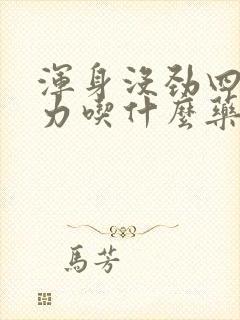 渾身沒勁四
力喫什麼藥
馬芳